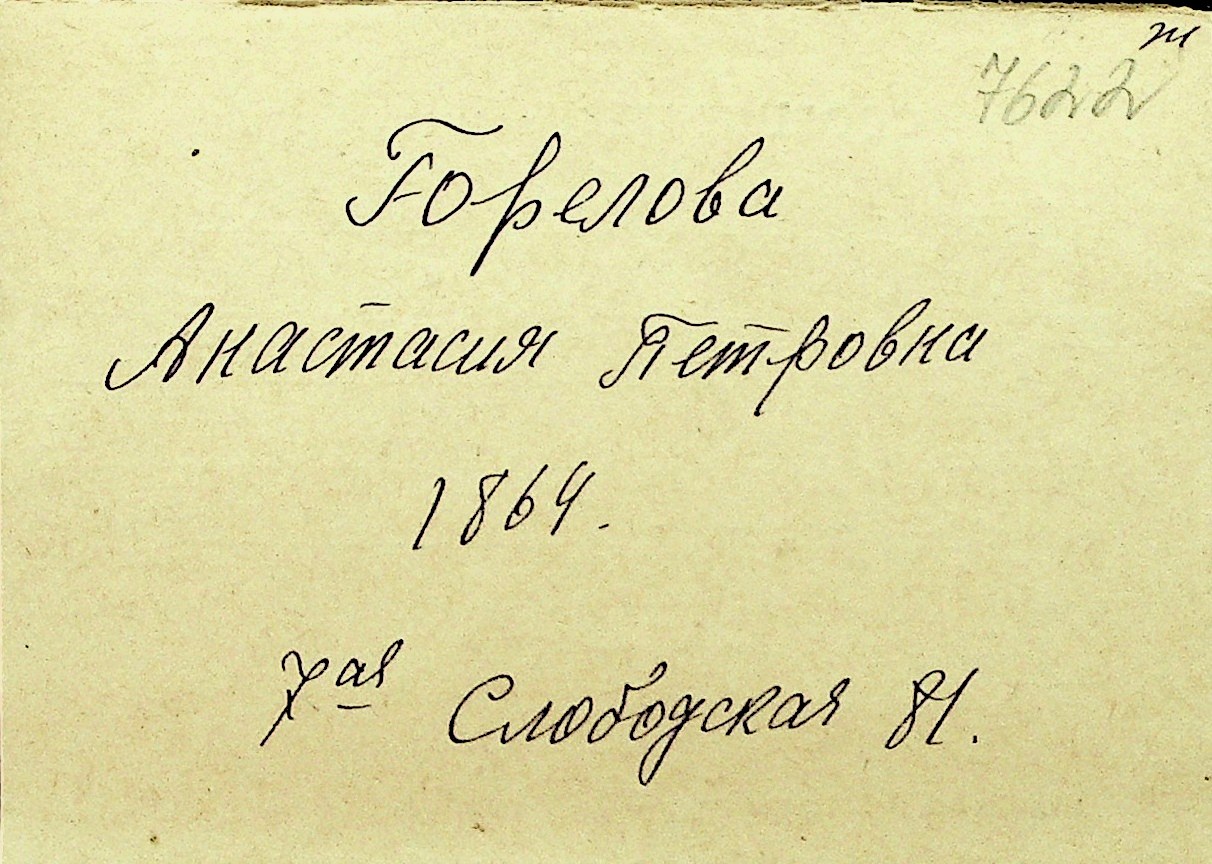 ж
7622
Горелова
Анастасия Петровна
1864.
7ая Слободская 81.